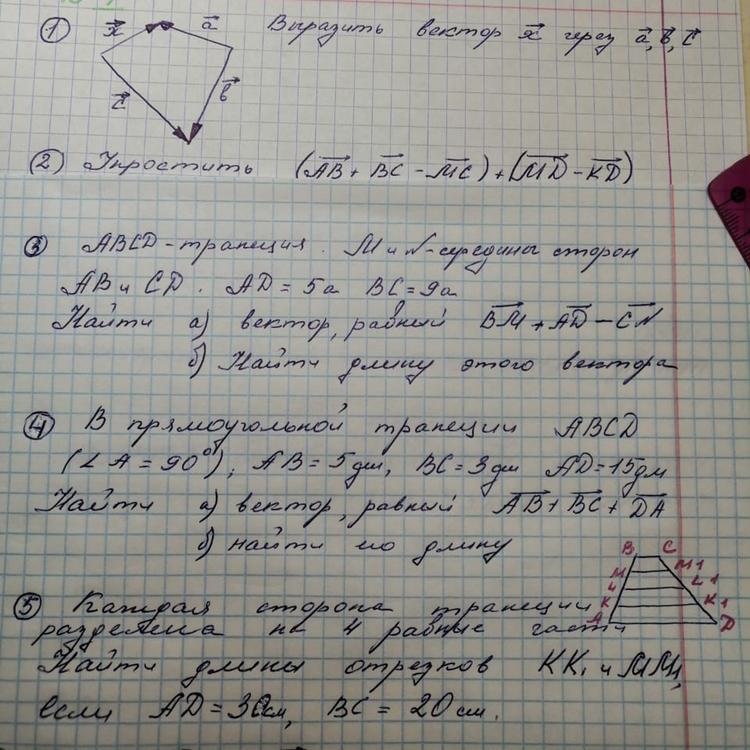 ① x⃗ a⃗ Выразить вектор x⃗ через a⃗, b⃗, c⃗
c⃗ b⃗
② Упростить (AB + BC - MC) + (MD - KD)
③ ABCD - трапеция. M и N - середины сторон
AB и CD. AD = 5a BC = 9a
Найти а) вектор, равный BM + AD - CN
б) Найти длину этого вектора
④ В прямоугольной трапеции ABCD
(∠A = 90°), AB = 5 дм, BC = 3 дм AD = 15 дм
Найти а) вектор, равный AB + BC + DA
б) найти его длину
B C
M M1
L L1
K K1
A D
⑤ Каждая сторона трапеции
разделена на 4 равные части
Найти длины отрезков KK₁ и MM₁,
если AD = 30 см, BC = 20 см.